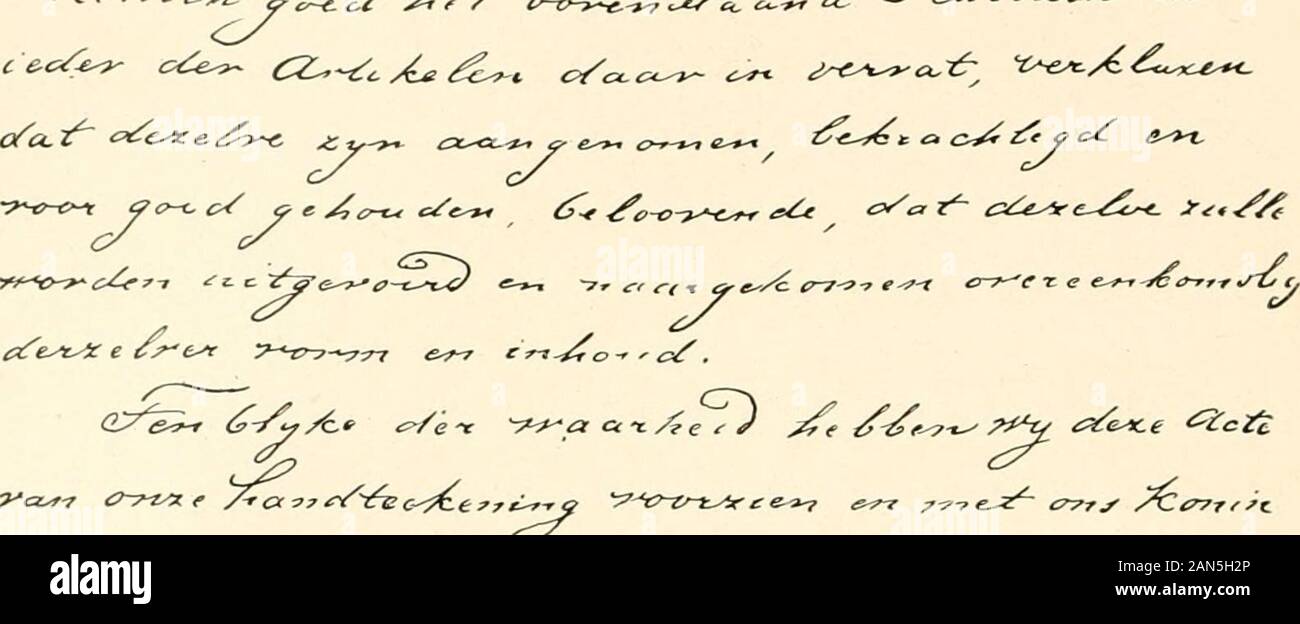 goed het bovenstaand
ieder der Artikelen daar in vervat, verklaren
dat dezelve zyn aangenomen, bekrachtigd en
voor goed gehouden, beloovende, dat dezelve zulle
worden uitgevoerd en naargekomen overeenkomstig
derzelver vorm en inhoud.
Ten blyke der waarheid hebben wy deze Acte
van onze handteekening voorzien en met ons Konin
alamy
Image ID: 2AN5H2P
www.alamy.com